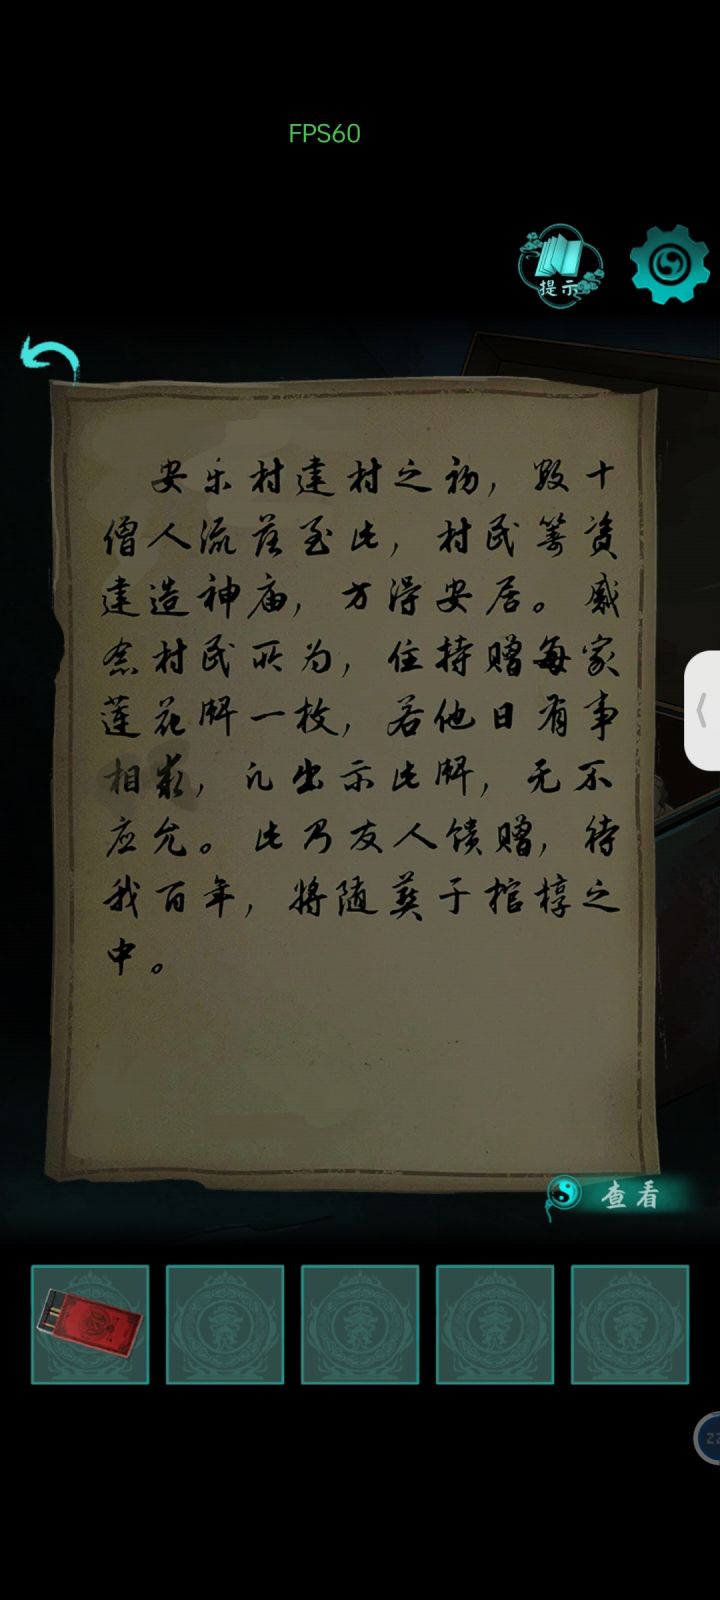 FPS60
提示
安乐村建村之初，数十
僧人流落至此，村民筹资
建造神庙，方得安居。感
念村民所为，住持赠每家
莲花牌一枚，若他日有事
相求，凡出示此牌，无不
应允。此乃友人馈赠，待
我百年，将随葬于棺椁之
中。
查看